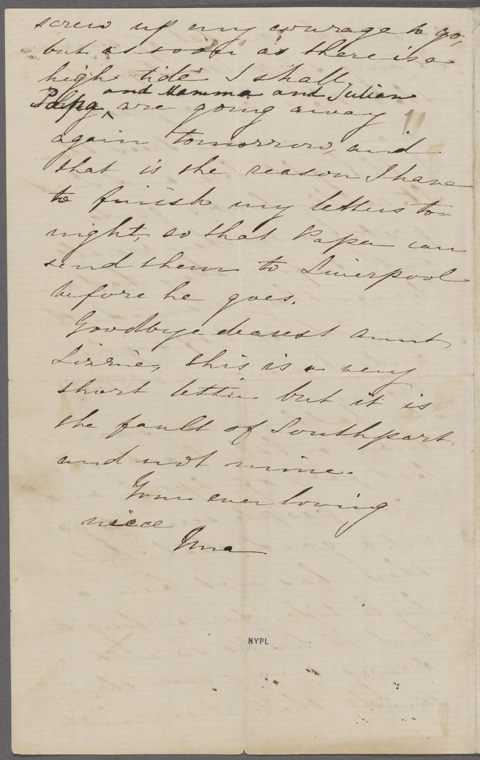 screw up my courage to go,
but as soon as there is a
high tide I shall.
Papa and Mamma and Julian are going away
again tomorrow, and
that is the reason I have
to finish my letters to-
night, so that Papa can
send them to Liverpool
before he goes.
Goodbye dearest Aunt
Lizzie, this is a very
short letter but it is
the fault of Southport
and not mine.
Your ever loving
niece
Una
NYPL